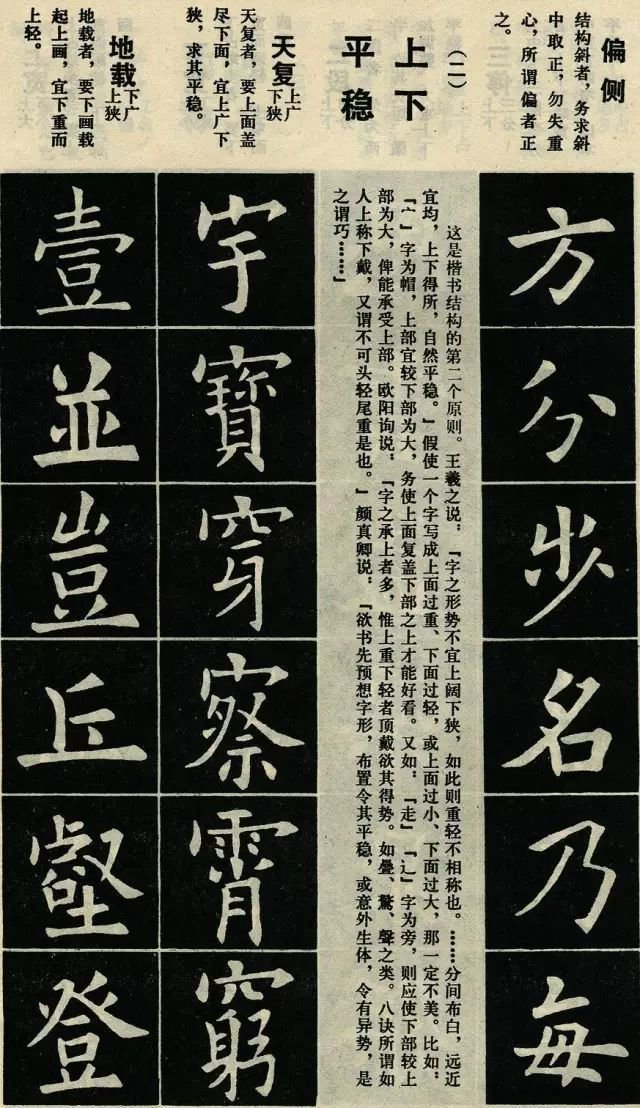 偏侧
结构斜者，务求斜
中取正，勿失重
心，所谓偏者正
之。
方
分
步
名
乃
每
（二）
上下
平稳
这是楷书结构的第二个原则。王羲之说，『字之形势不宜上阔下狭，如此则重轻不相称也。……分间布白，远近
宜均，上下得所，自然平稳。』假使一个字写成上面过重、下面过轻，或上面过小、下面过大，那一定不美。比如：
『宀』字为帽，上部宜较下部为大，务使上面复盖下部之上才能好看。又如：『走』『辶』字为旁，则应使下部较上
部为大，俾能承受上部。欧阳询说，『字之承上者多，惟上重下轻者顶戴欲其得势。如疊、驚、聲之类。八诀所谓如
人上称下戴，又谓不可头轻尾重是也。』颜真卿说：『欲书先预想字形，布置令其平稳，或意外生体，令有异势，是
之谓巧……』
天复上广
下狭
天复者，要上面盖
尽下面，宜上广下
狭，求其平稳。
宇
寶
穿
察
霄
窮
地载下广
上狭
地载者，要下画载
起上画，宜下重而
上轻。
壹
並
豈
丘
壑
登